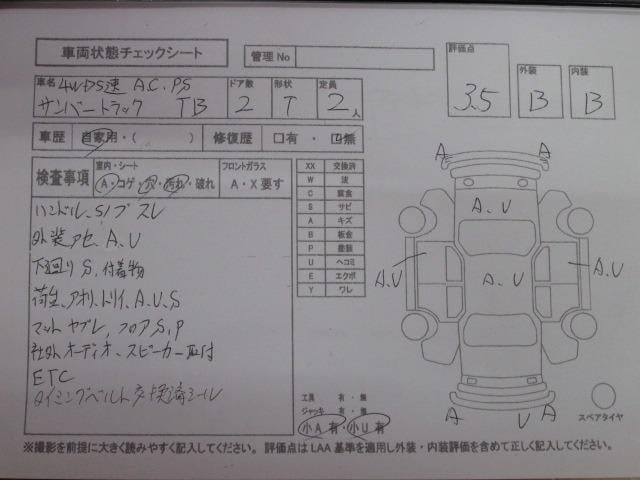 車両状態チェックシート
管理No
評価点 3.5
外装 B
内装 B
車名 4WD5速 AC.PS
サンバートラック TB
ドア数 2
形状 T
定員 2人
車歴 自家用・( )
修復歴 □有・☑無
検査事項
室内・シート
A・コゲ・穴・汚れ・破れ
フロントガラス
A・X要す
ハンドル、S/ブスレ
外装アセ、A、U
下廻りS、付着物
荷台、アオリ、トリイ、A、U、S
マットヤブレ、フロアS、P
社外オーディオ、スピーカー取付
ETC
タイミングベルト交換済シール
XX 交換済
W 波
C 腐食
S サビ
A キズ
B 板金
P 塗装
U ヘコミ
E エクボ
Y ワレ
A A
A、U
A.U A、U A、U
A U A
工具 有・無
ジャッキ 有・無
小A有・小U有
スペアタイヤ
※撮影を前提に大きく読みやすく記入してください。評価点はLAA基準を適用し外装・内装評価を含めて正しく記入してください。